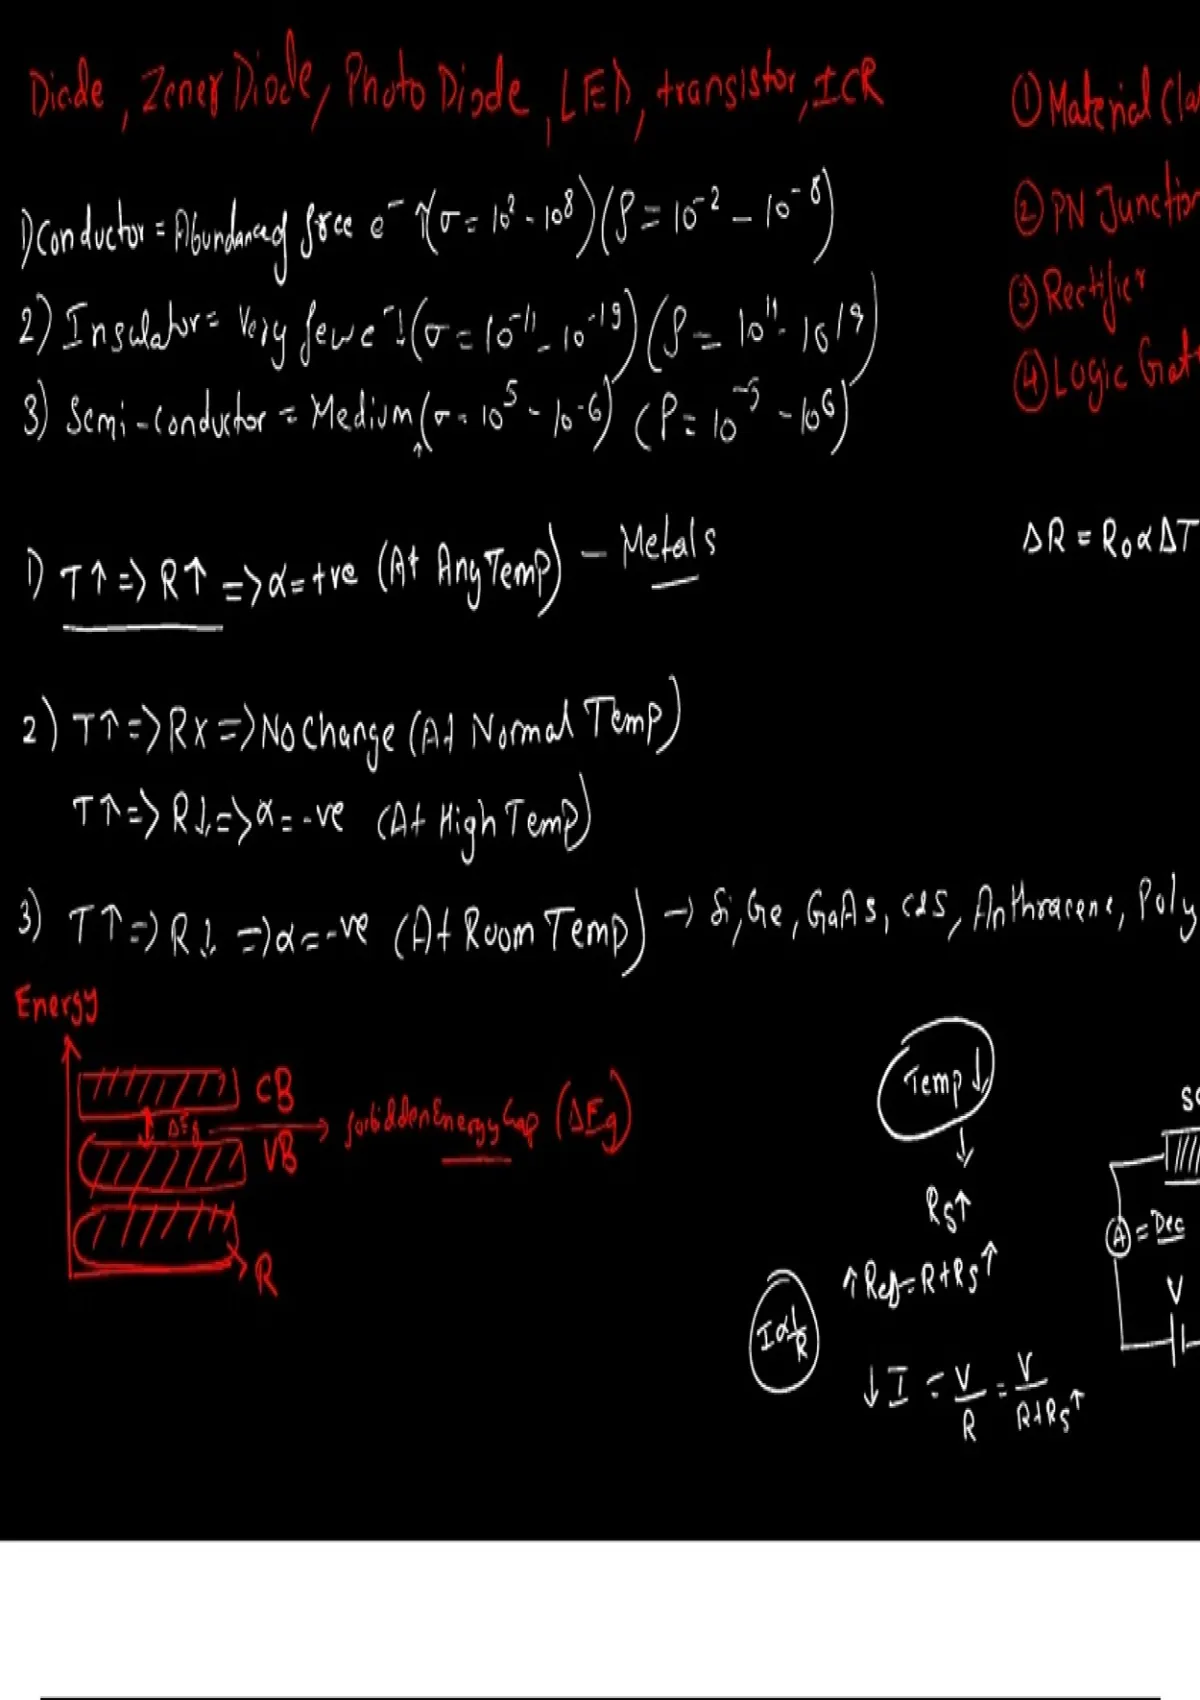 Diode, Zener Diode, Photo Diode, LED, transistor, ICR
① Material Cla
② PN Junction
③ Rectifier
④ Logic Gat
1) Conductor = Abundance of free e⁻ ↑ (σ = 10² - 10⁸) (ρ = 10⁻² - 10⁻⁸)
2) Insulator = Very few e⁻ ↓ (σ = 10⁻¹¹ - 10⁻¹⁹) (ρ = 10¹¹ - 10¹⁹)
3) Semi-conductor = Medium (σ = 10⁵ - 10⁻⁶) (ρ = 10⁻⁵ - 10⁶)
↑
1) T↑ => R↑ => α = +ve (At Any Temp) - Metals
ΔR = R₀αΔT
2) T↑ => R× => No Change (At Normal Temp)
T↑ => R↓ => α = -ve (At High Temp)
3) T↑ => R↓ => α = -ve (At Room Temp) → Si, Ge, GaAs, CdS, Anthracene, Poly
Energy
CB
ΔEg → forbidden Energy Gap (ΔEg)
VB
R
Temp↓
↓
Rs↑
↑ Req = R+Rs↑
I α 1/R
↓ I = V/R = V/R+Rs↑
A = Dec
V